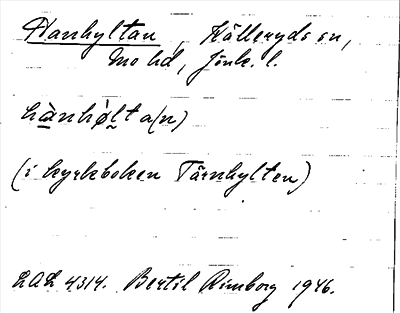 Hanhyltan, Källeryds sn,
Mo hd, Jönk. l.
hànhø̀lta(n)
(i kyrkboken Tärnhylten)
LAL 4314. Bertil Rimborg 1946.